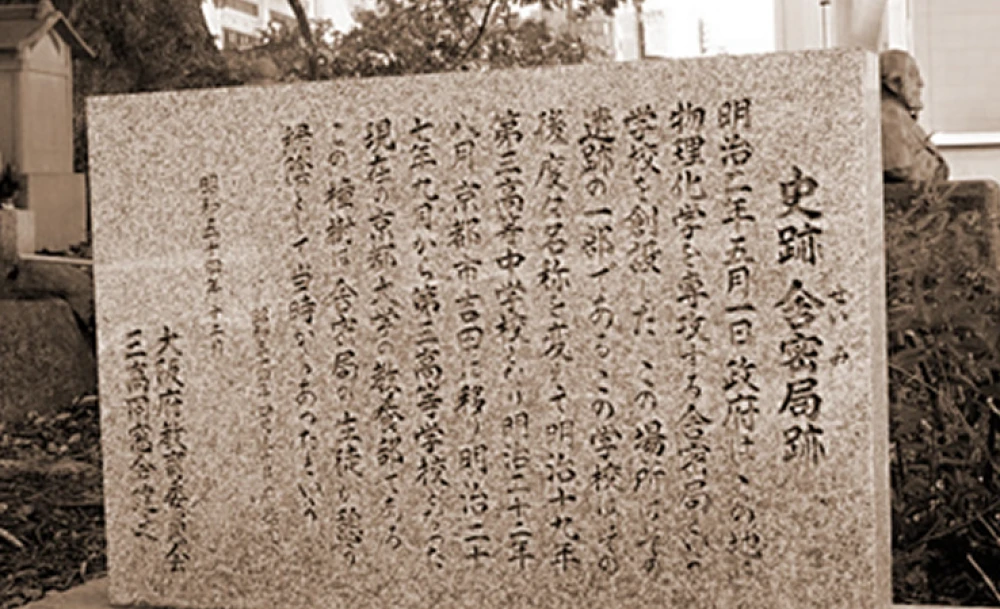 史跡 舎密局跡
せいみ
明治二年五月一日政府はこの地に
物理化学を専攻する舎密局という
学校を創設した この場所はその
遺跡の一部である この学校はその
後度々名称を変えて明治十九年
第三高等中学校となり明治二十二年
八月京都市吉田に移り明治二十
七年九月から第三高等学校となった
現在の京都大学の教養部である
この樟樹は舎密局の生徒が憩う
緑陰として当時からあったという
昭和三十
大阪府教育委員会
三高同窓会